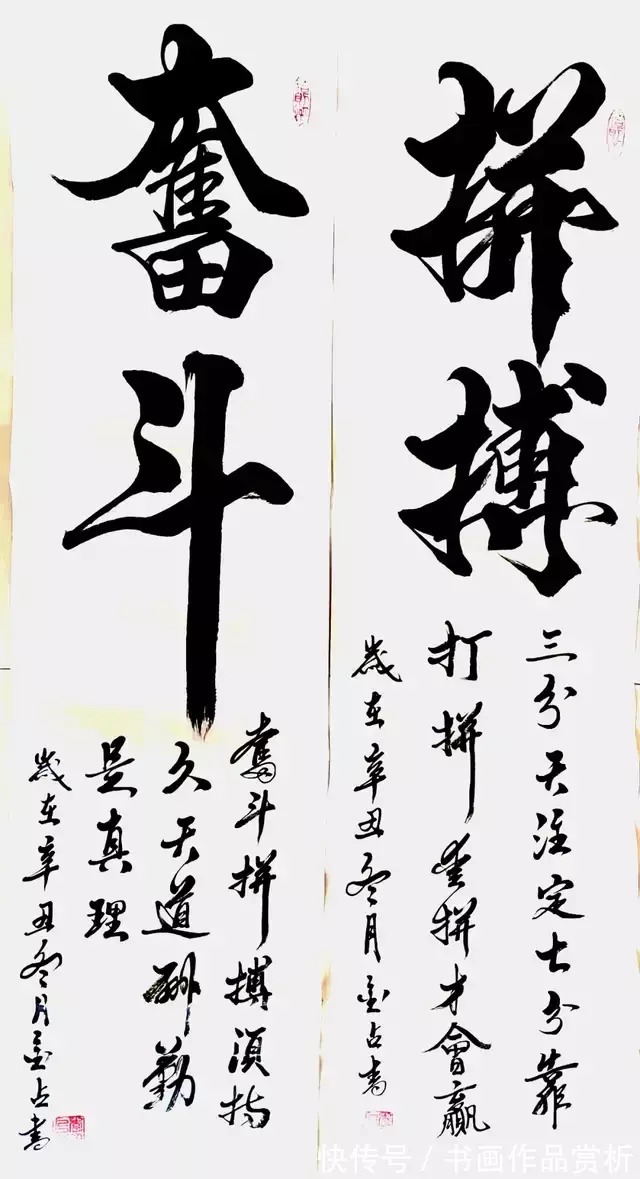 拼搏
三分天注定七分靠
打拼愛拼才會贏
歲在辛丑冬月占書
奮斗
奮斗拼搏須持
久天道酬勤
是真理
歲在辛丑冬月占書
快传号/书画作品赏析